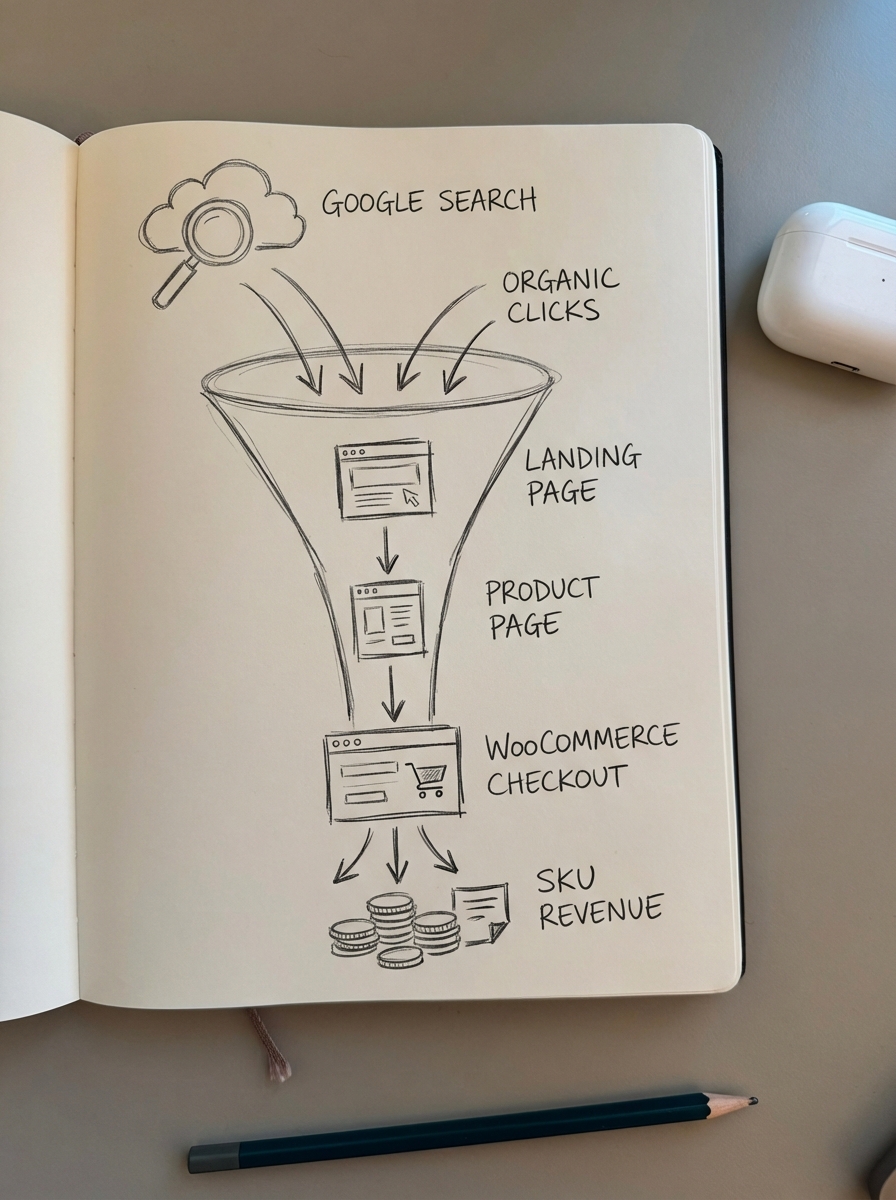 GOOGLE SEARCH
ORGANIC
CLICKS
LANDING
PAGE
PRODUCT
PAGE
WOOCOMMERCE
CHECKOUT
SKU
REVENUE